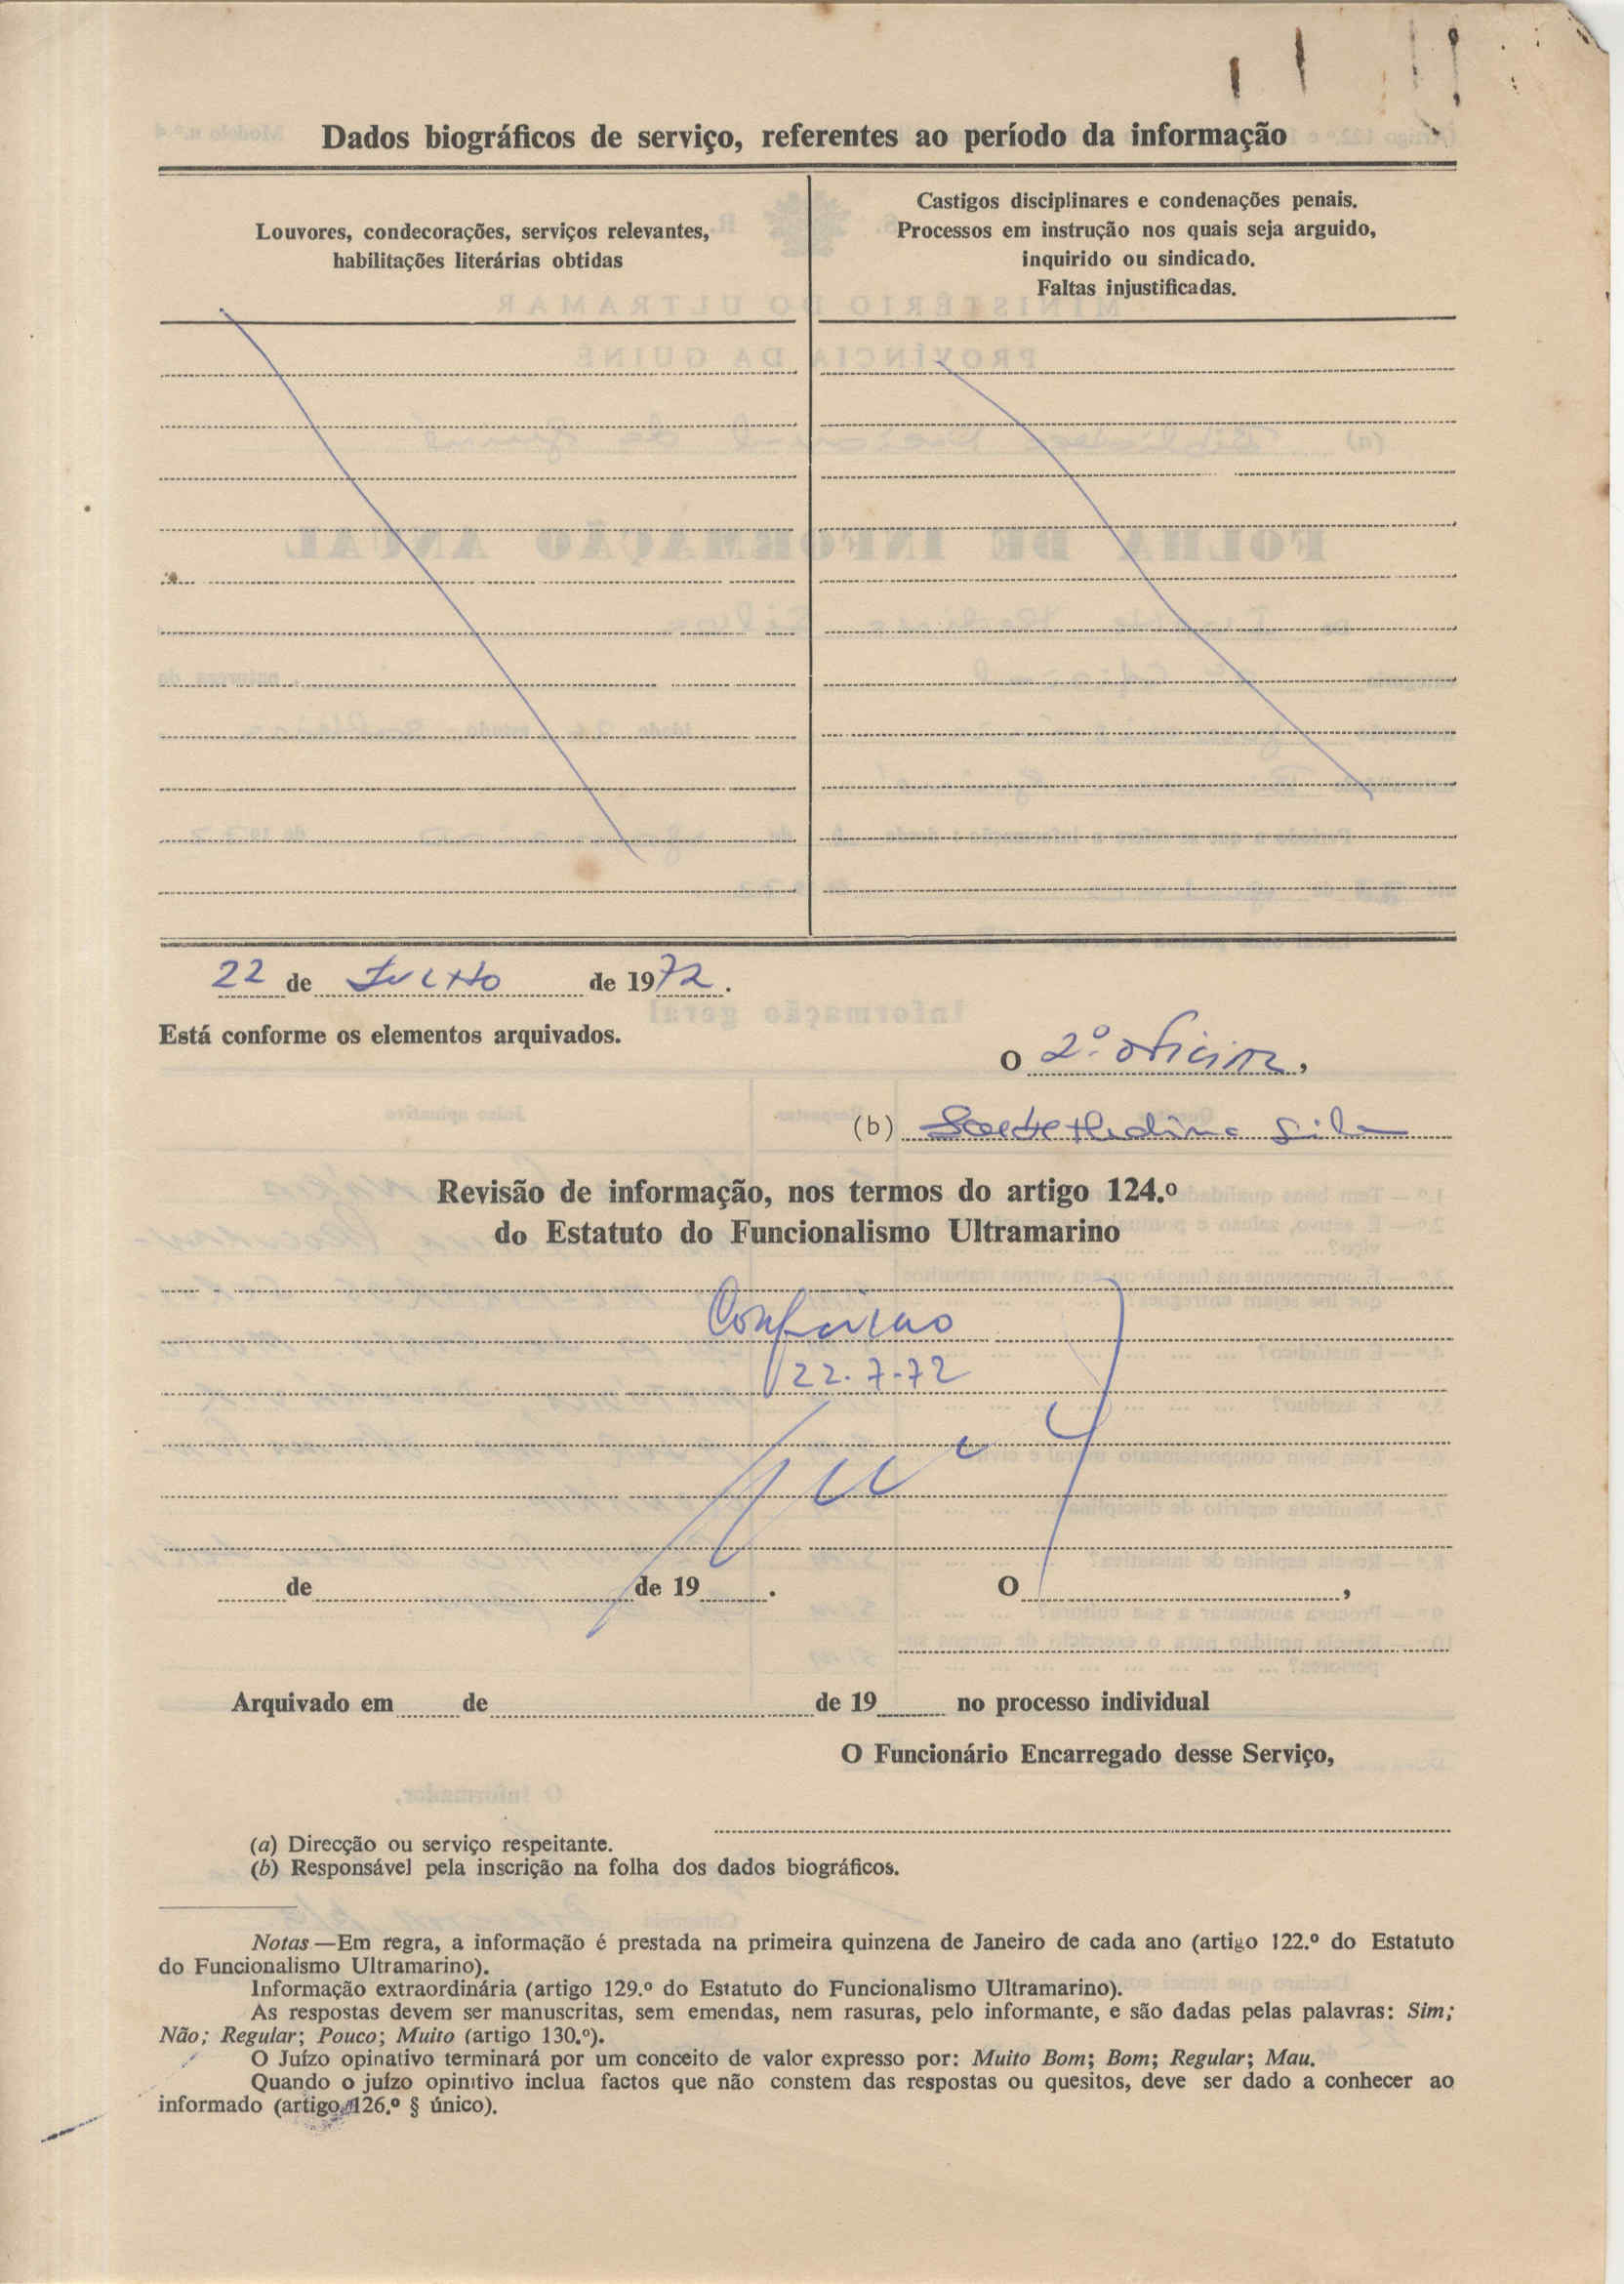 Dados biográficos de serviço, referentes ao período da informação
Louvores, condecorações, serviços relevantes,
habilitações literárias obtidas
Castigos disciplinares e condenações penais.
Processos em instrução nos quais seja arguido,
inquirido ou sindicado.
Faltas injustificadas.
22 de Julho de 1972.
Está conforme os elementos arquivados.
O 2.º oficial,
(b) Medina Silva
Revisão de informação, nos termos do artigo 124.º
do Estatuto do Funcionalismo Ultramarino
Confirmo
22-7-72
de de 19 .
O ,
Arquivado em de de 19 no processo individual
O Funcionário Encarregado desse Serviço,
(a) Direcção ou serviço respeitante.
(b) Responsável pela inscrição na folha dos dados biográficos.
Notas—Em regra, a informação é prestada na primeira quinzena de Janeiro de cada ano (artigo 122.º do Estatuto
do Funcionalismo Ultramarino).
Informação extraordinária (artigo 129.º do Estatuto do Funcionalismo Ultramarino).
As respostas devem ser manuscritas, sem emendas, nem rasuras, pelo informante, e são dadas pelas palavras: Sim;
Não; Regular; Pouco; Muito (artigo 130.º).
O Juízo opinativo terminará por um conceito de valor expresso por: Muito Bom; Bom; Regular; Mau.
Quando o juízo opinitivo inclua factos que não constem das respostas ou quesitos, deve ser dado a conhecer ao
informado (artigo 126.º § único).